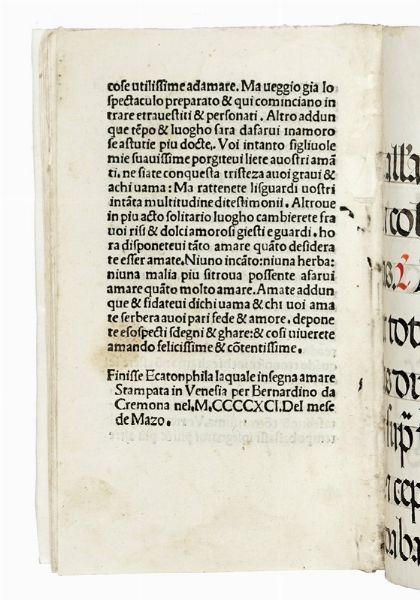 cose utilissime adamare. Ma ueggio gia lo
spectaculo preparato & qui cominciano in
trare etrauestiti & personati. Altro addun
que tēpo & luogho sara dasarui inamoro
se astutie piu docte. Voi intanto figliuole
mie suauissime porgiteui liete auostri amā
ti. ne siate conquesta tristeza auoi graui &
achi uama: Ma rattenete lisguardi uostri
intāta multitudine ditestimonii. Altroue
in piu acto solitario luogho cambierete fra
uoi risi & dolci amorosi giesti e guardi. ho
ra disponeteui tāto amare quāto desidera
te esser amate. Niuno incāto: niuna herba:
niuna malia piu sitroua possente afarui
amare quāto molto amare. Amate addun
que & fidateui dichi uama & chi uoi ama
te serbera auoi pari fede & amore. depone
te esospecti sdegni & ghare: & cosi uiuerete
amando felicissime & cōtentissime.
Finisse Ecatonphila laquale insegna amare
Stampata in Venesia per Bernardino da
Cremona nel. M.CCCCXCI. Del mese
de Mazo.
all'a
col
tot